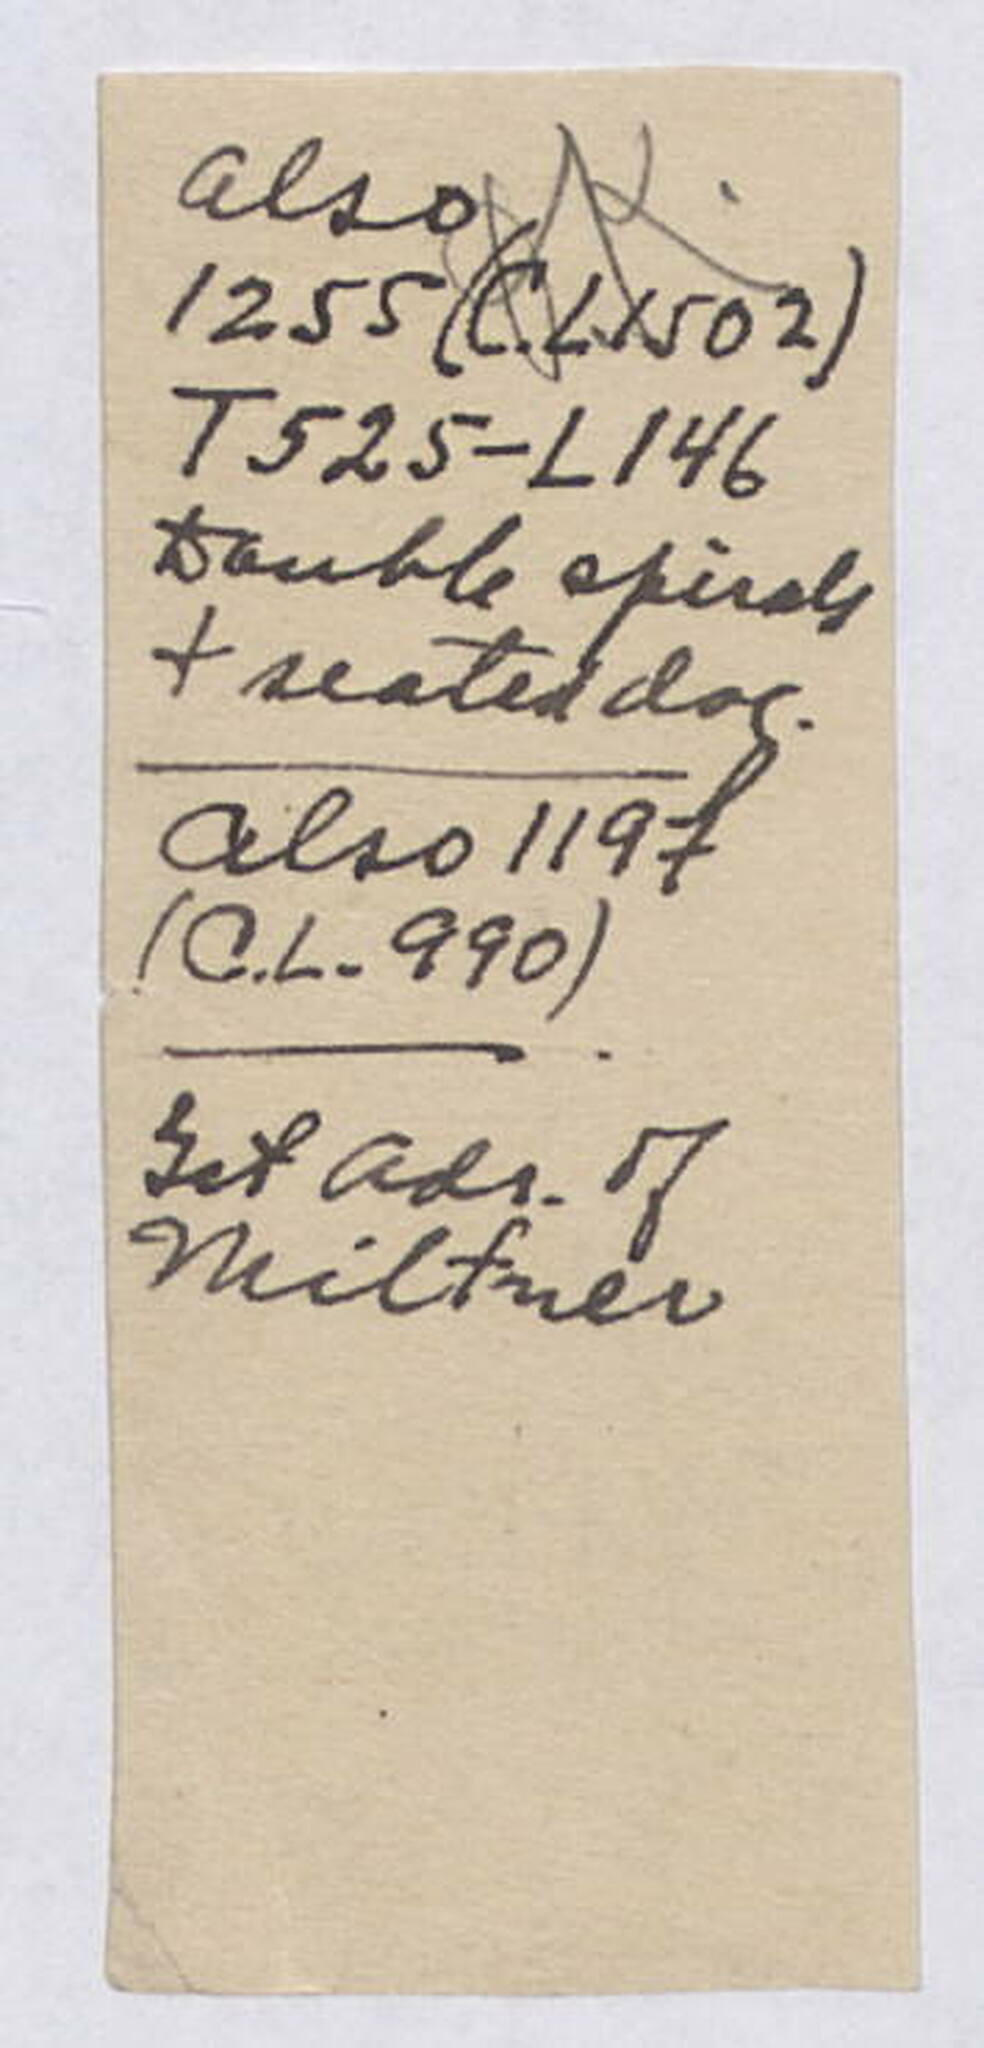 Also
1255 (C.L. 1502)
T525-L146
Double spirals
+ seated dog.
Also 1197
(C.L. 990)
Get Adr. of
Miltner